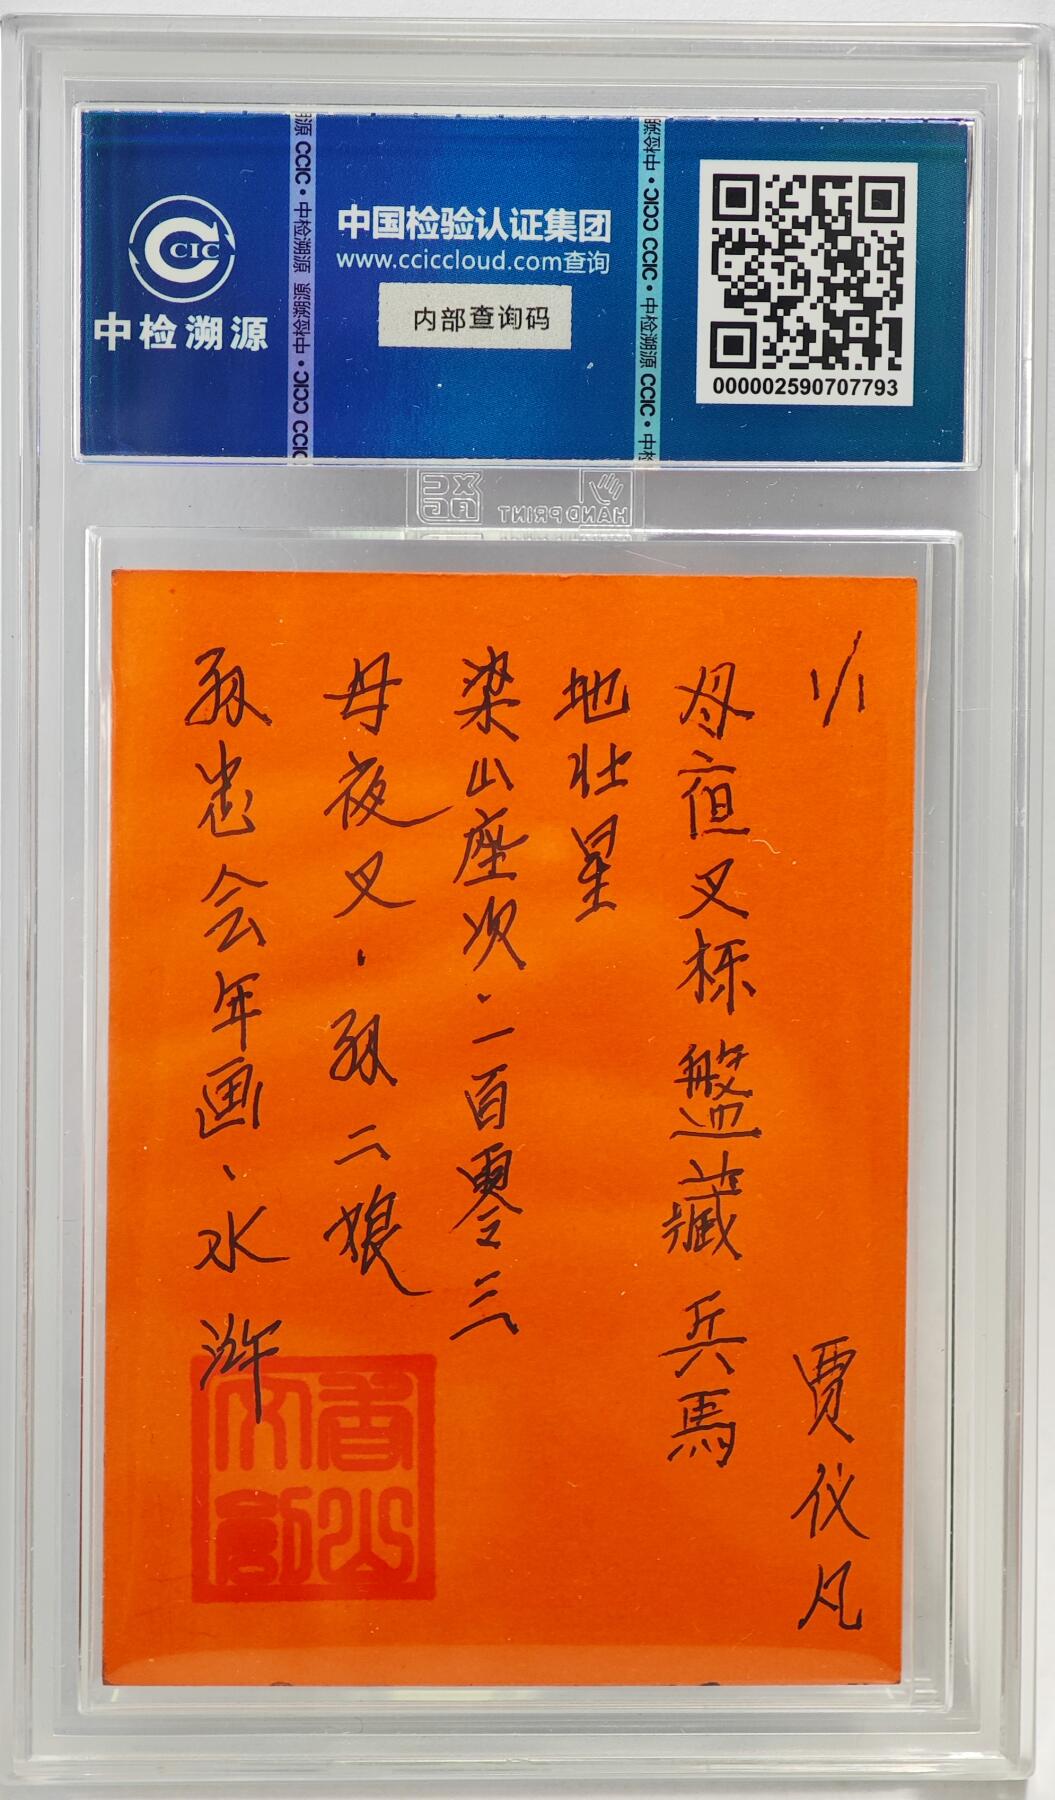 CIC
中检溯源
中国检验认证集团
www.cciccloud.com查询
内部查询码
000002590707793
中检溯源 CCIC • 中检溯源 CCIC
中检溯源 CCIC • 中检溯源 CCIC
HAND PRINT
1/1
贾仪凡
母夜叉栎盤藏兵馬
地壮星
梁山座次·一百零三
母夜叉·孙二娘
孙忠会年画、水浒